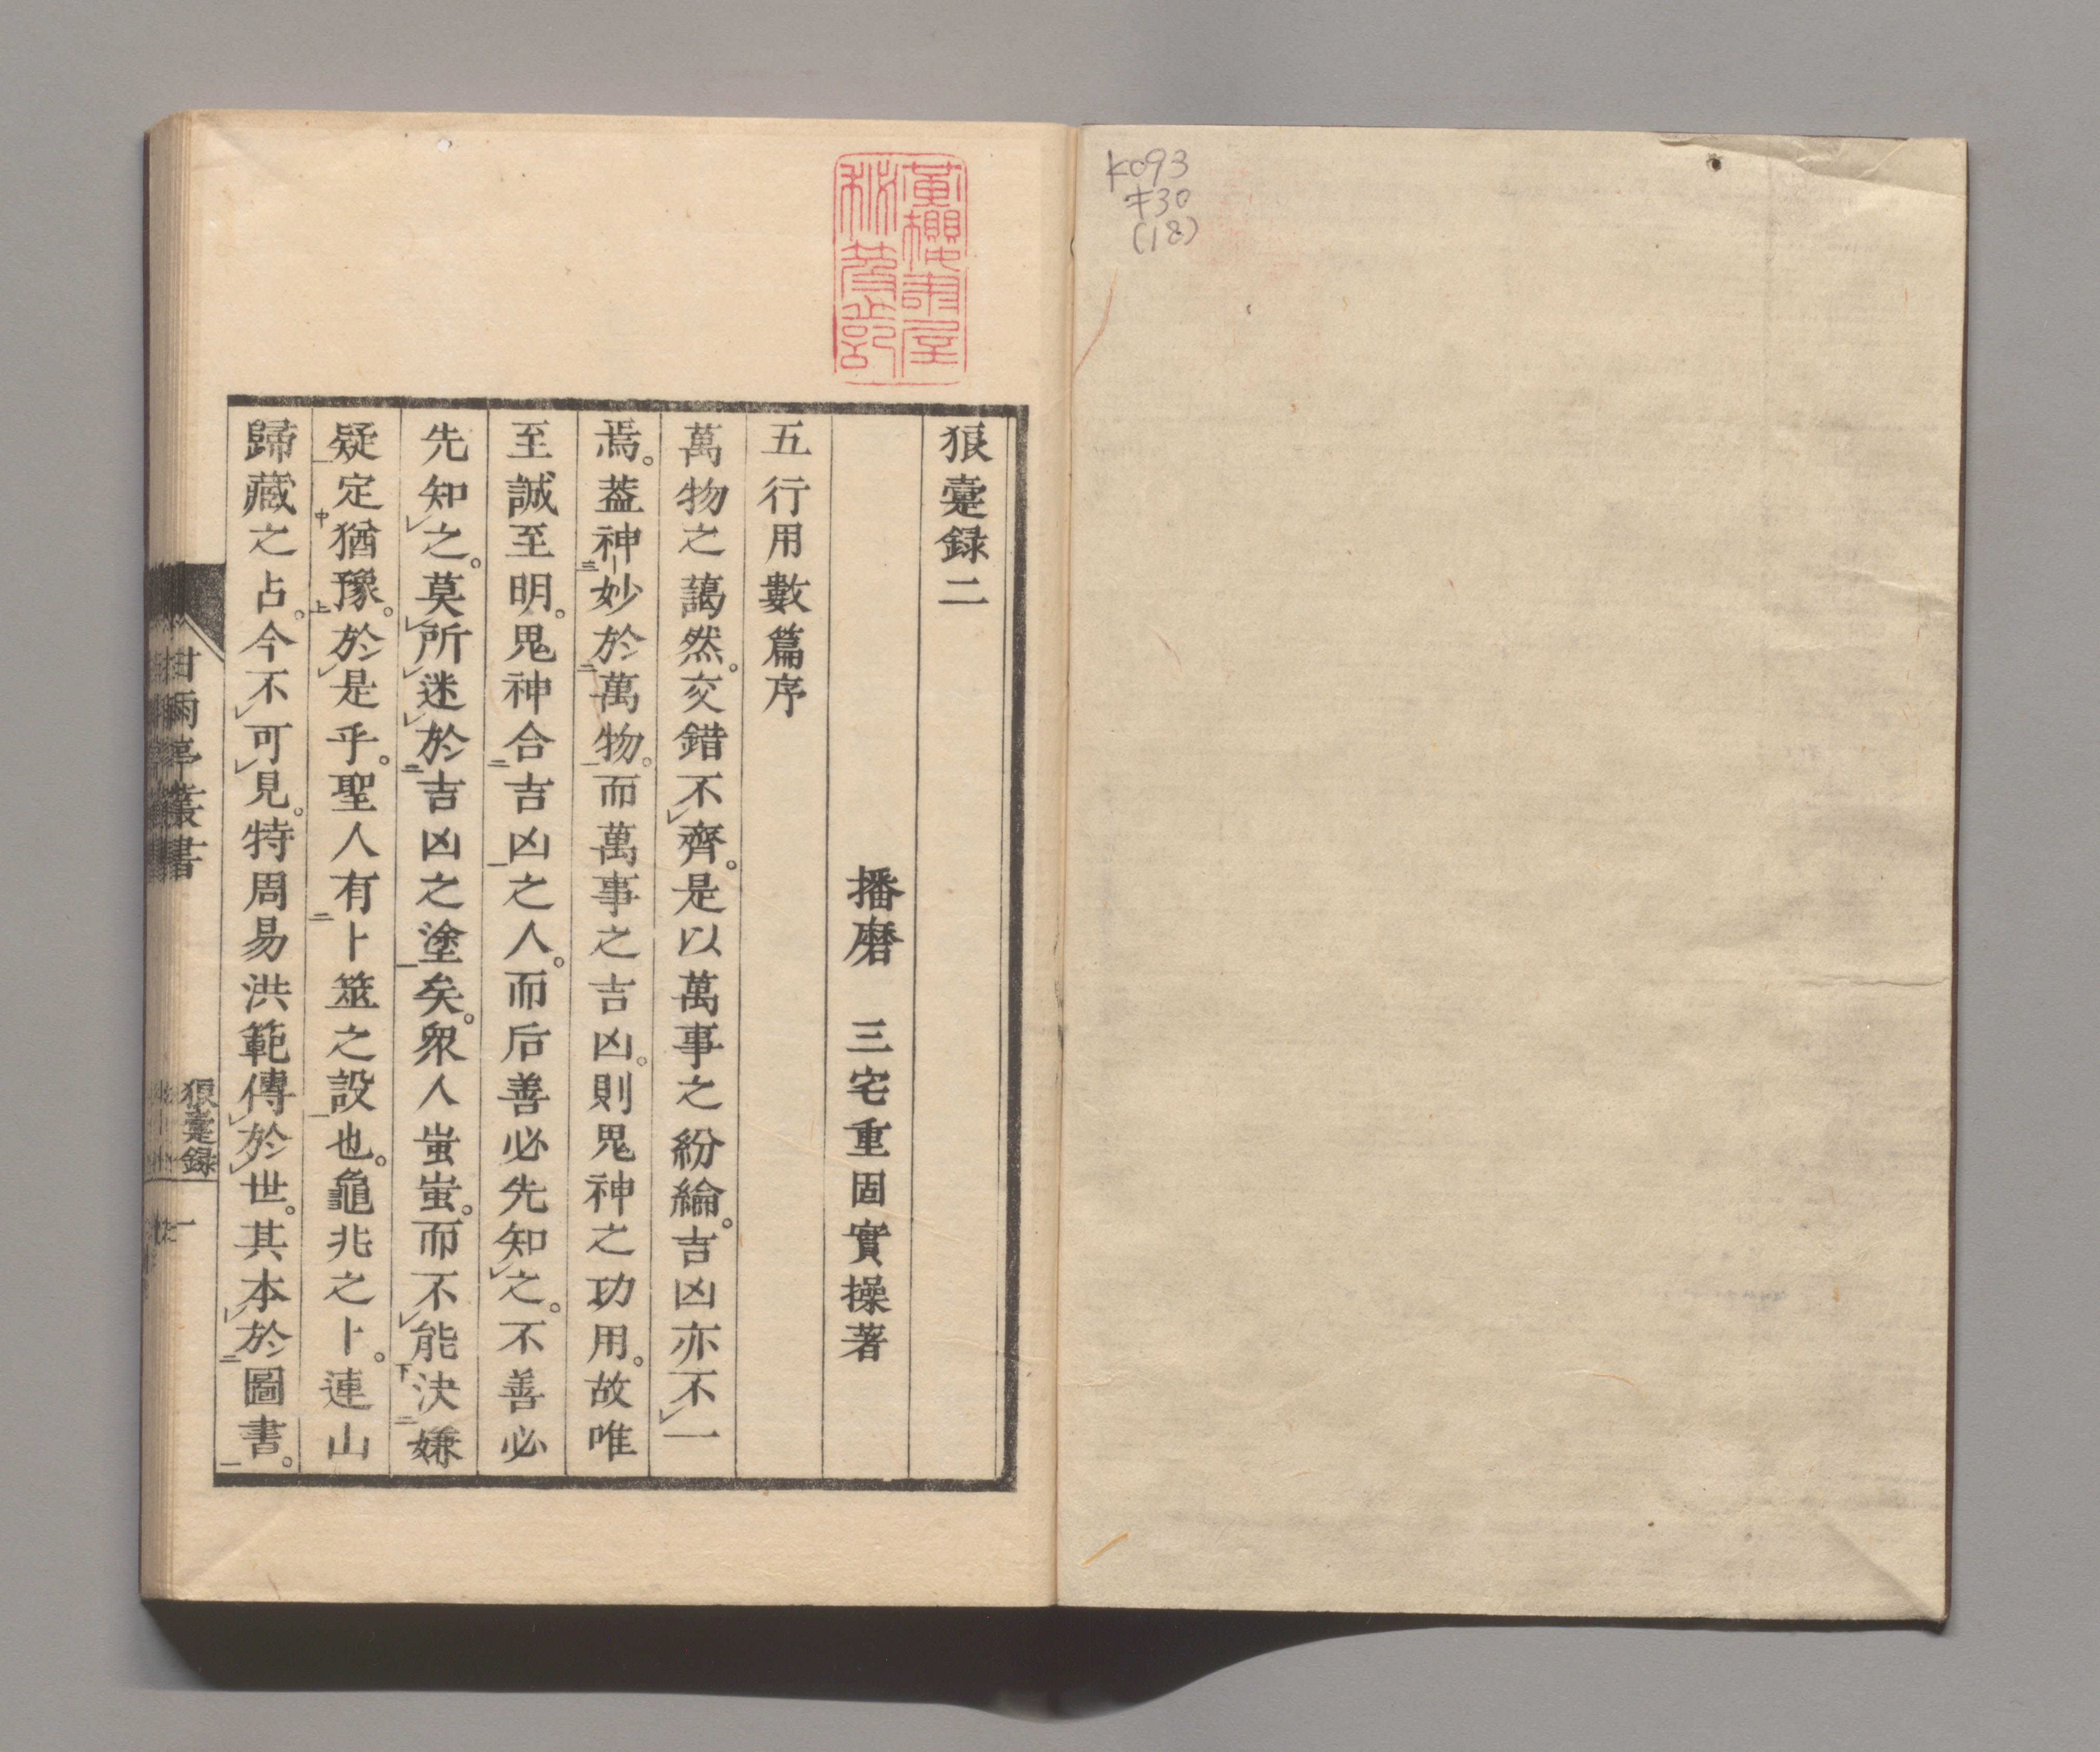 K093
キ30
(18)
狼疐録二
播磨　三宅重固實操著
五行用數篇序
萬物之藹然。交錯不齊。是以萬事之紛綸。吉凶亦不一
焉。葢神妙於萬物。而萬事之吉凶。則鬼神之功用。故唯
至誠至明。鬼神合吉凶之人。而后善必先知之。不善必
先知之。莫所迷於吉凶之塗矣。衆人蚩蚩。而不能決嫌
疑定猶豫。於是乎。聖人有卜筮之設也。龜兆之卜。連山
歸藏之占。今不可見。特周易洪範傳於世。其本於圖書。
甘雨亭叢書
狼疐録
一